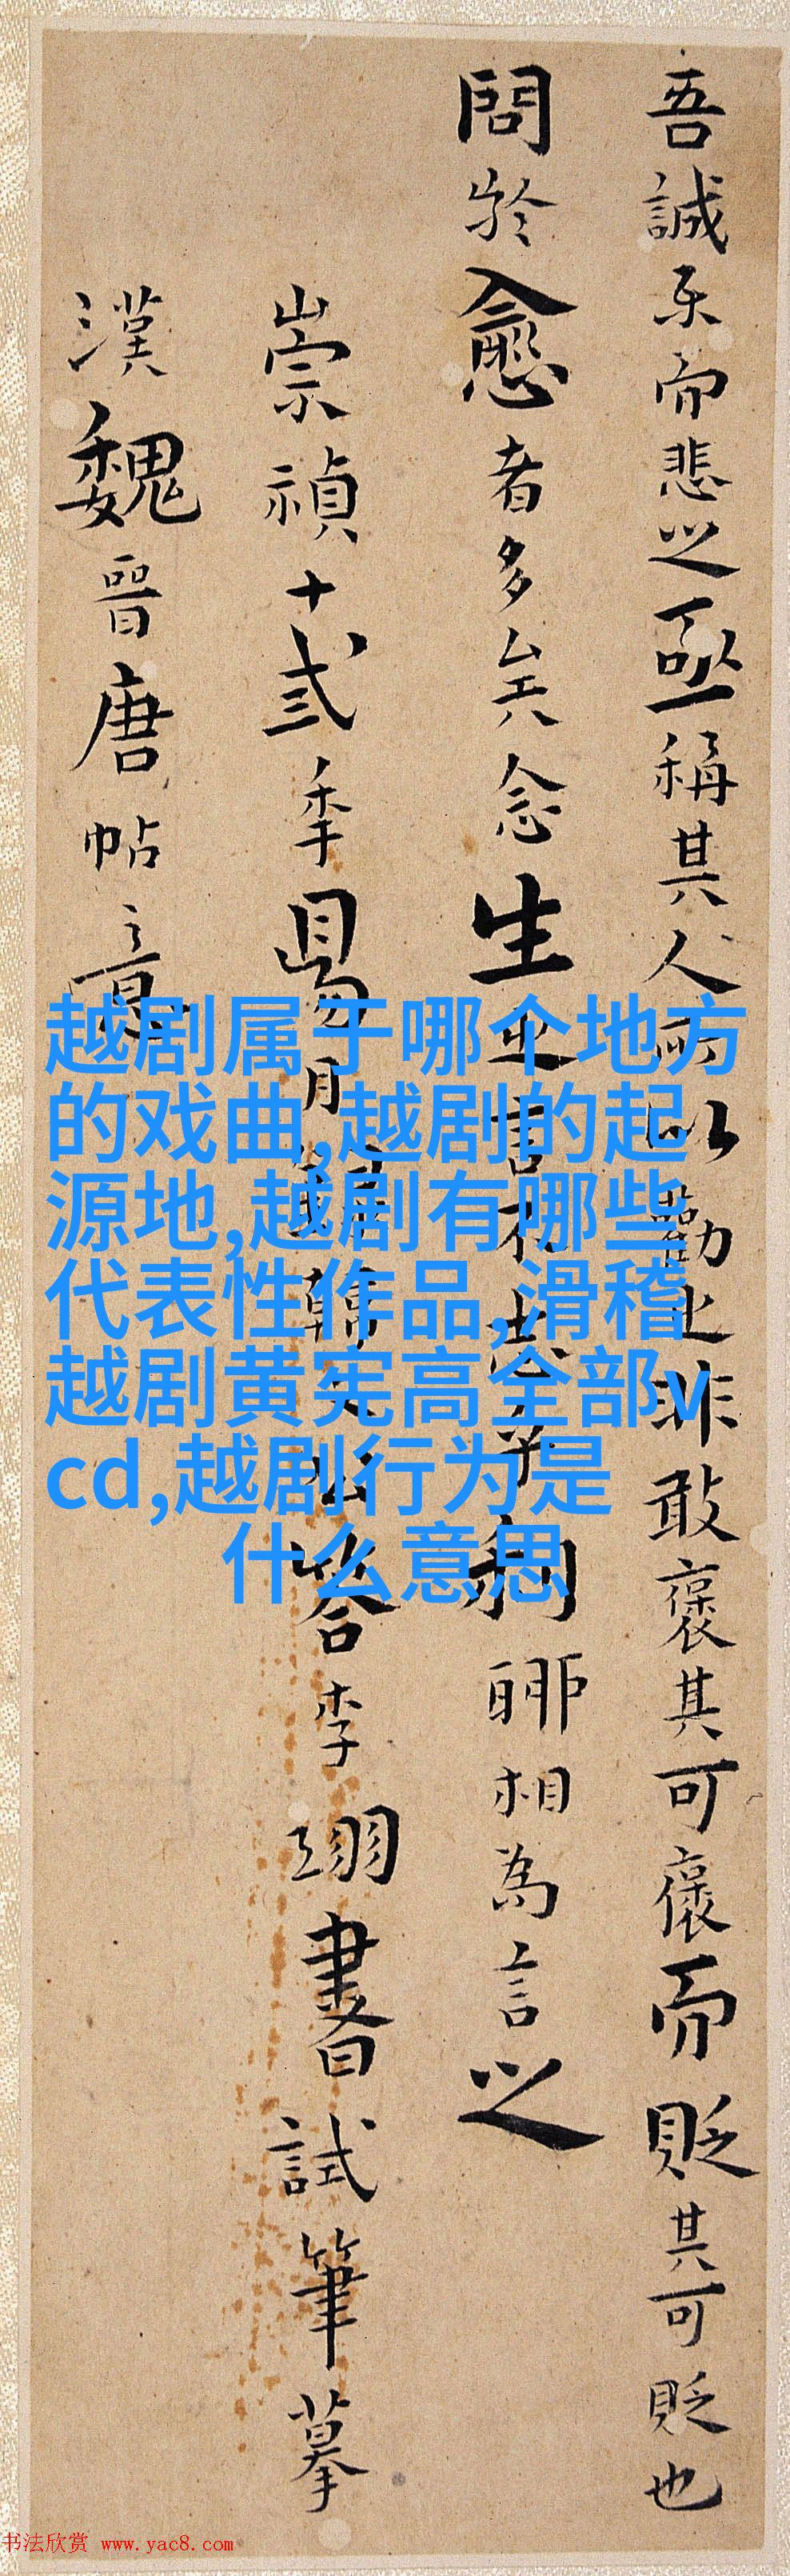 吾誠樂而悲之亟稱其人所以勸之非敢褒其可褒而貶其可貶也
問於愈者多矣念生之言不志乎利聊相為言之
崇禎十弍季易月韓文公答李翊書試筆摹
漢魏晉唐帖意
越剧属于哪个地方
的戏曲,越剧的起
源地,越剧有哪些
代表性作品,滑稽
越剧黄宪高全部v
cd,越剧行为是
什么意思
书法欣赏 www.yac8.com